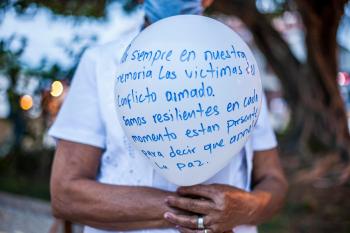 siempre en nuestra
memoria las victimas del
Conflicto armado.
Somos resilientes en cada
momento están presente
para decir que
la paz.